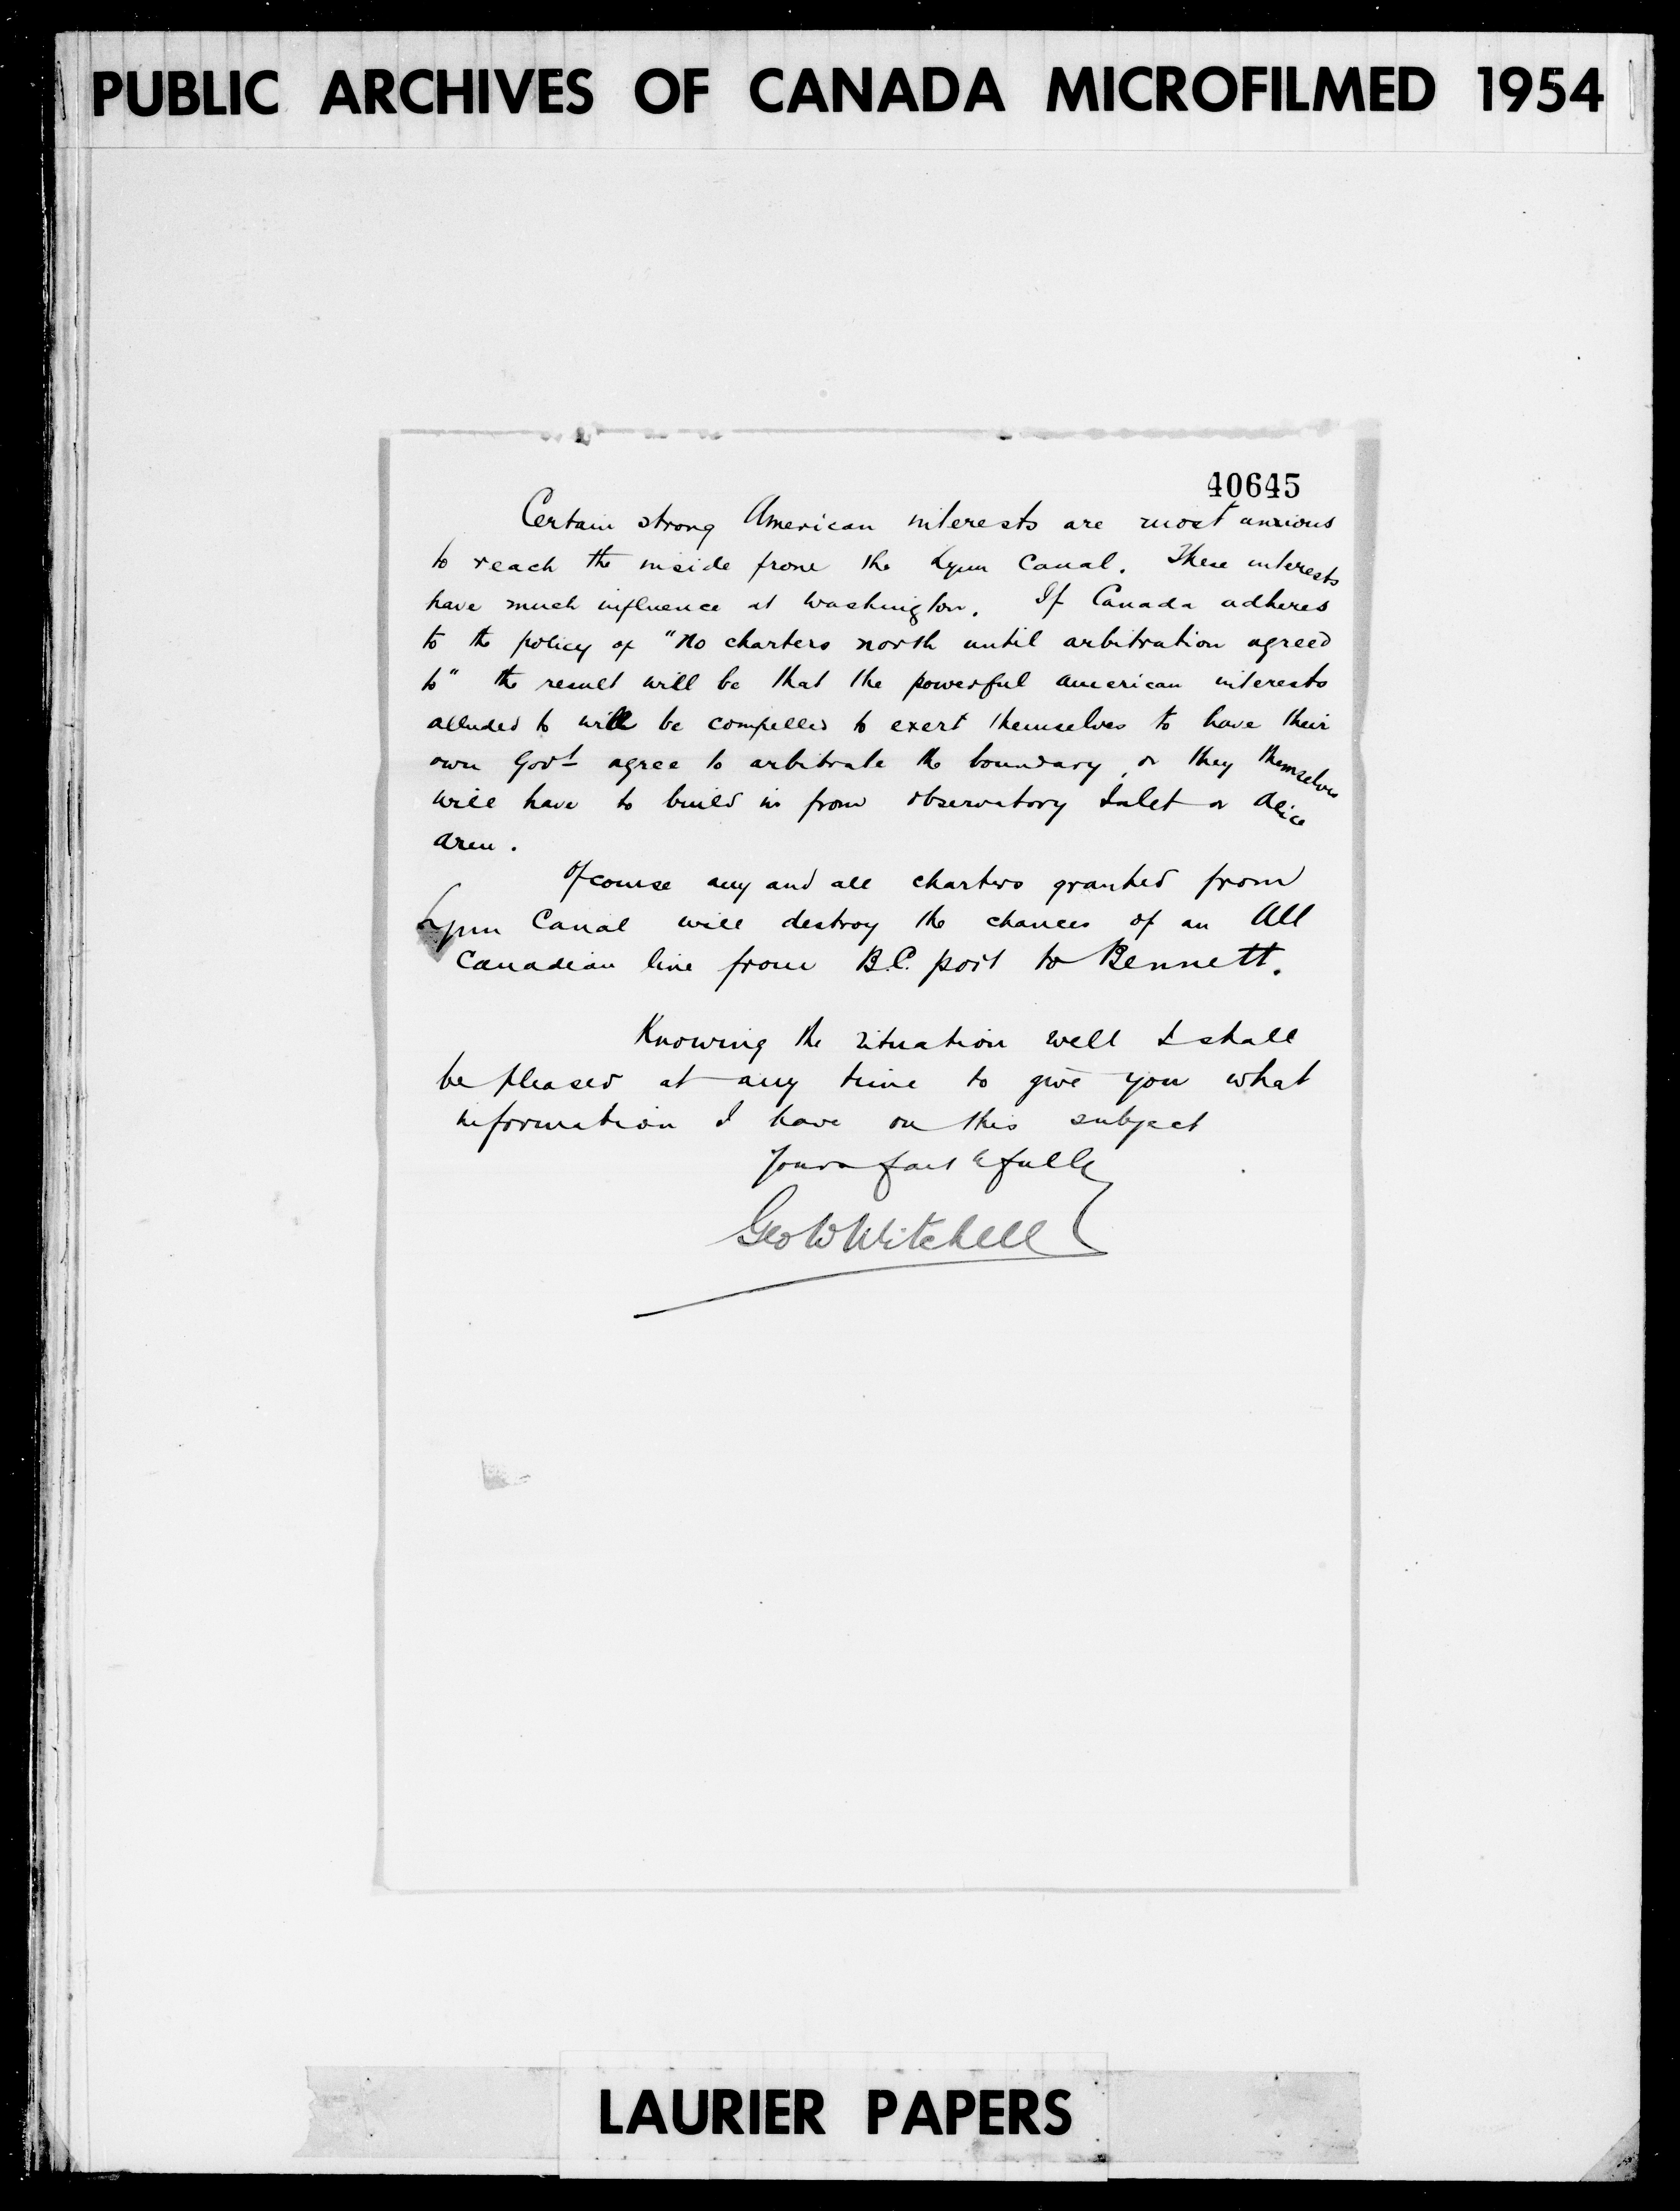 PUBLIC ARCHIVES OF CANADA MICROFILMED 1954
40645
Certain strong American interests are most anxious
to reach the inside from the Lynn Canal. These interests
have much influence at Washington. If Canada adheres
to the policy of "No charters north until arbitration agreed
to" the result will be that the powerful American interests
alluded to will be compelled to exert themselves to have their
own Govt agree to arbitrate the boundary, or they themselves
will have to build in from Observatory Inlet or Alice
Arm.
Of course any and all charters granted from
Lynn Canal will destroy the chances of an All
Canadian line from B.C. port to Bennett.
Knowing the situation well I shall
be pleased at any time to give you what
information I have on this subject
Yours faithfully
Geo W Mitchell
LAURIER PAPERS